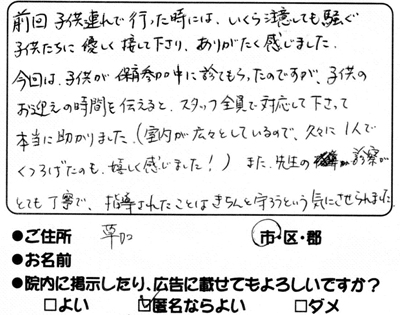 前回 子供連れで行った時には、いくら注意しても騒ぐ
子供たちに 優しく 接して下さり、ありがたく感じました。
今回は、子供が 保育参加中に 診てもらったのですが、子供の
お迎えの時間を伝えると、スタッフ全員で対応して下さって
本当に助かりました。(室内が広々としているので、久々に 1人で
くつろげたのも、嬉しく感じました!) また、先生の 診察が
とても丁寧で、指導されたことはきちんと守ろうという 気にさせられました
●ご住所 草加 市・区・郡
●お名前
●院内に掲示したり、広告に載せてもよろしいですか?
□よい ☑匿名ならよい □ダメ